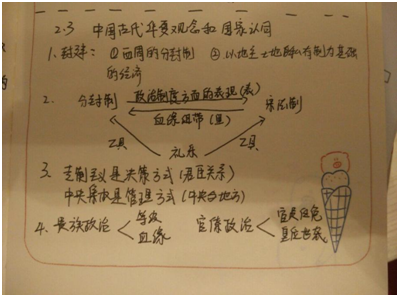 2.3 中国古代华夏观念和国家认同
1. 封建：①西周的分封制 ②以地主土地所有制为基础
的经济
2. 分封制 政治制度方面的表现(表) 宗法制
血缘纽带(里)
工具 工具
礼乐
3. 专制主义是决策方式(君臣关系)
中央集权是管理方式(中央与地方)
4. 贵族政治 等级
血缘
官僚政治 官员任免